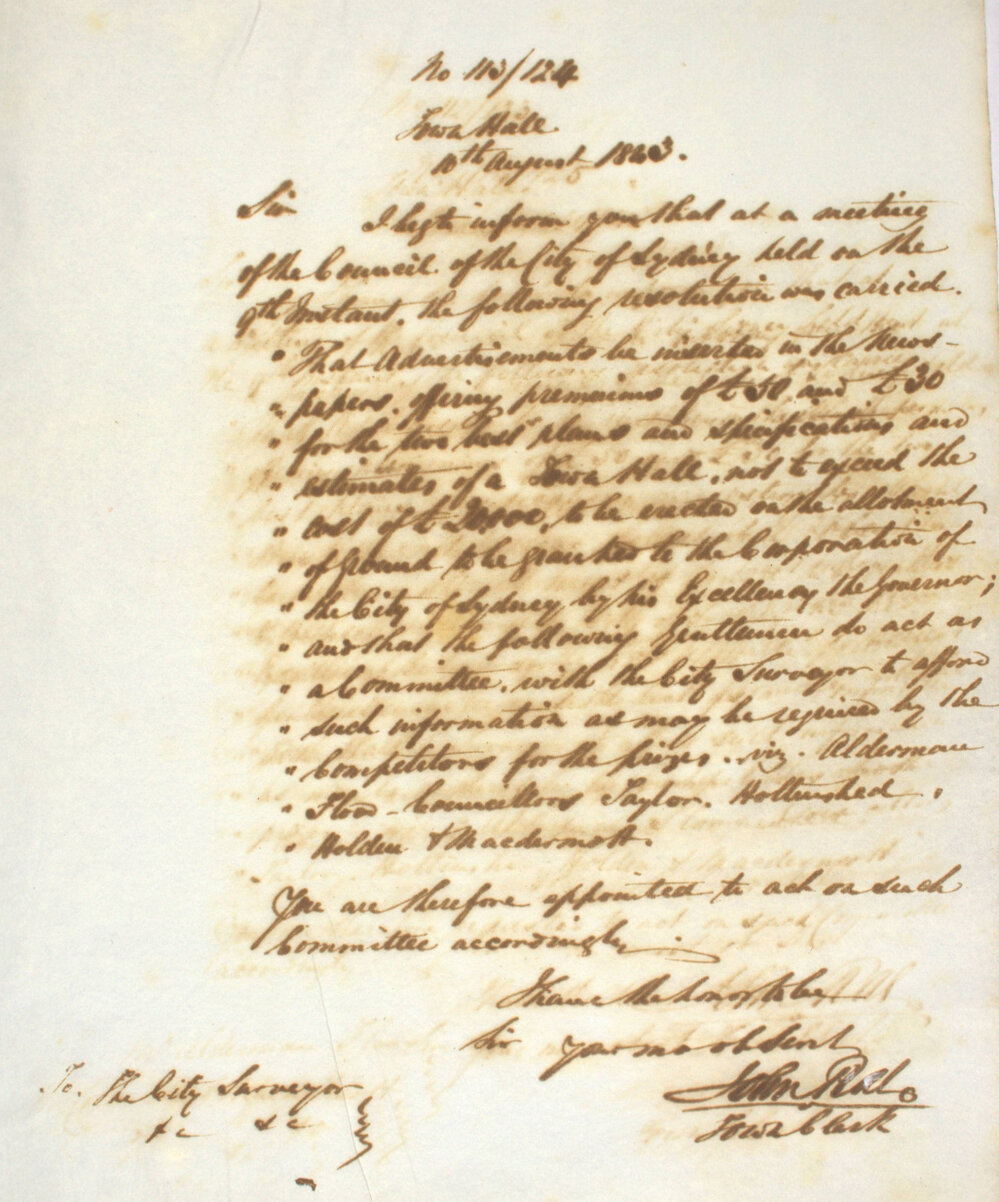 No 113/124
Town Hall
10th August 1843.
Sir I beg to inform you that at a meeting
of the Council of the City of Sydney held on the
9th Instant, the following resolution was carried.
" That Advertisements be inserted in the News-
" papers, offering premiums of £50 and £30
" for the two best plans and specifications and
" estimates of a Town Hall, not to exceed the
" cost of £ to be erected on the allotment
" of ground to be granted to the Corporation of
" the City of Sydney by his Excellency the Governor;
" and that the following Gentlemen do act as
" a Committee, with the City Surveyor to afford
" such information as may be required by the
" Competitors for the prizes. viz. Alderman
" Flood - Councillors Taylor, Hollinshed,
" Holden & Macdermott.
You are therefore appointed to act on such
Committee accordingly.
I have the honor to be
Sir your mo ob Servt
John
Town Clerk
To, The City Surveyor
&c &c